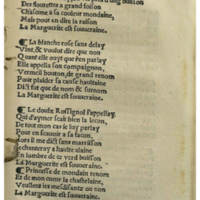 Des fleurettes a grand foison
Chascune a la couleur mondaine,
Mais pour en dire la raison
La Marguerite est souueraine.
La blanche rose sans delay
Vint, & voulut dire que non
Quant elle ouyt que j'en parlay
Elle appella son compaignon,
Vermeil bouton, de grand renom
Pour plaider la cause haultaine
Dist que de nom & surnom
La Marguerite est souueraine.
Le doulx Rossignol j'appellay
Qui d'aymer scait bien la lecon,
De tout mon cas ie luy parlay
Pour en scauoir a facon,
lors il me dist sans marrisson
Je chanteray a haulte alaine
En lumbre de ce verd buisson
La Marguerite est souueraine.
Princesse de mondain renom
Et de mon cueur la chastelaine,
Veullent les mesdisants ou non
La Marguerite est souueraine.